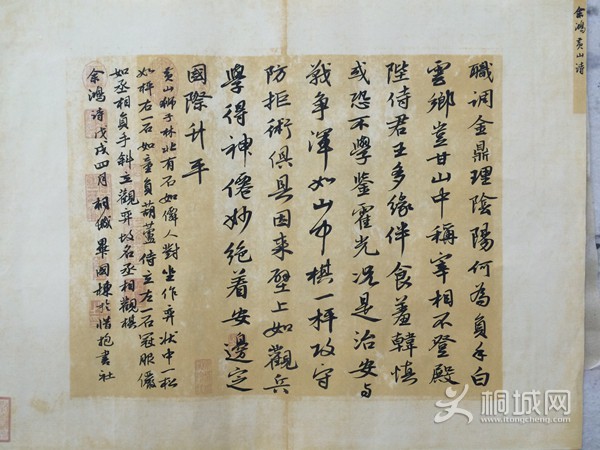 余鴻黃山詩
職調金鼎理陰陽何為負手白
雲鄉豈甘山中稱宰相不登殿
陛侍君王多緣伴食羞韓慎
或恐不學鑒霍光況是治安与
戰爭渾如山中棋一枰攻守
防拒術俱具因來壁上如觀兵
學得神僊妙絕着安邊定
國際升平
黃山獅子林北有石如偉人對坐作弈狀中一松
如枰右一石如童負葫蘆侍立左一石冠服儼
如丞相負手斜立觀弈故名丞相觀棋
余鴻詩戊戌四月桐城畢國棟於惜抱書社
桐城网
www.itongcheng.com